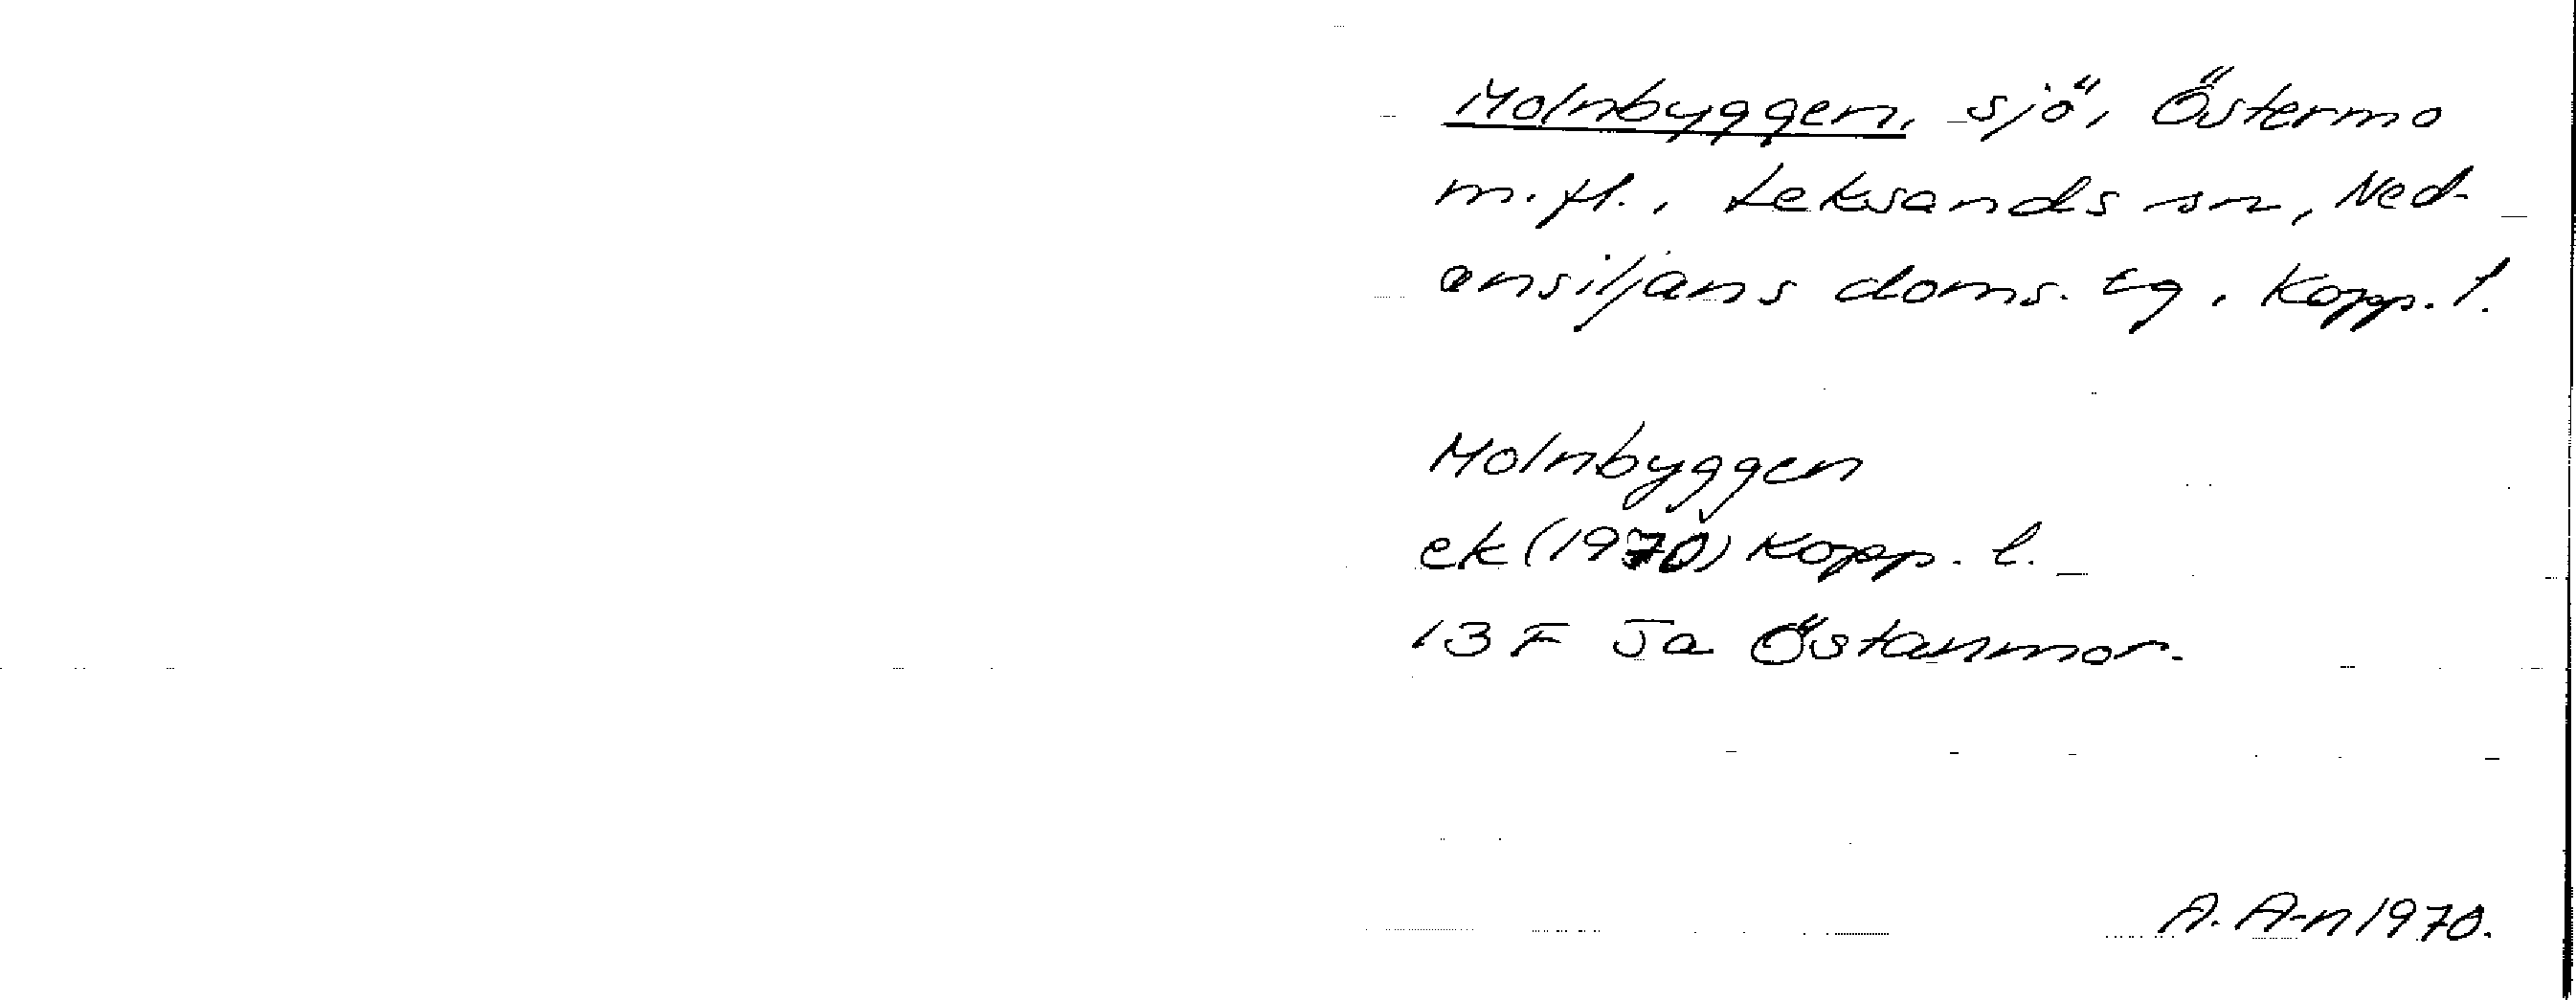 Molnbyggen, sjö, Östermo
m.fl., Leksands sn, Ned-
ansiljans doms. tg, Kopp. l.
Molnbyggen
ek (1970) Kopp. l.
13 F Ja Östanmor.
A. A-n 1970.